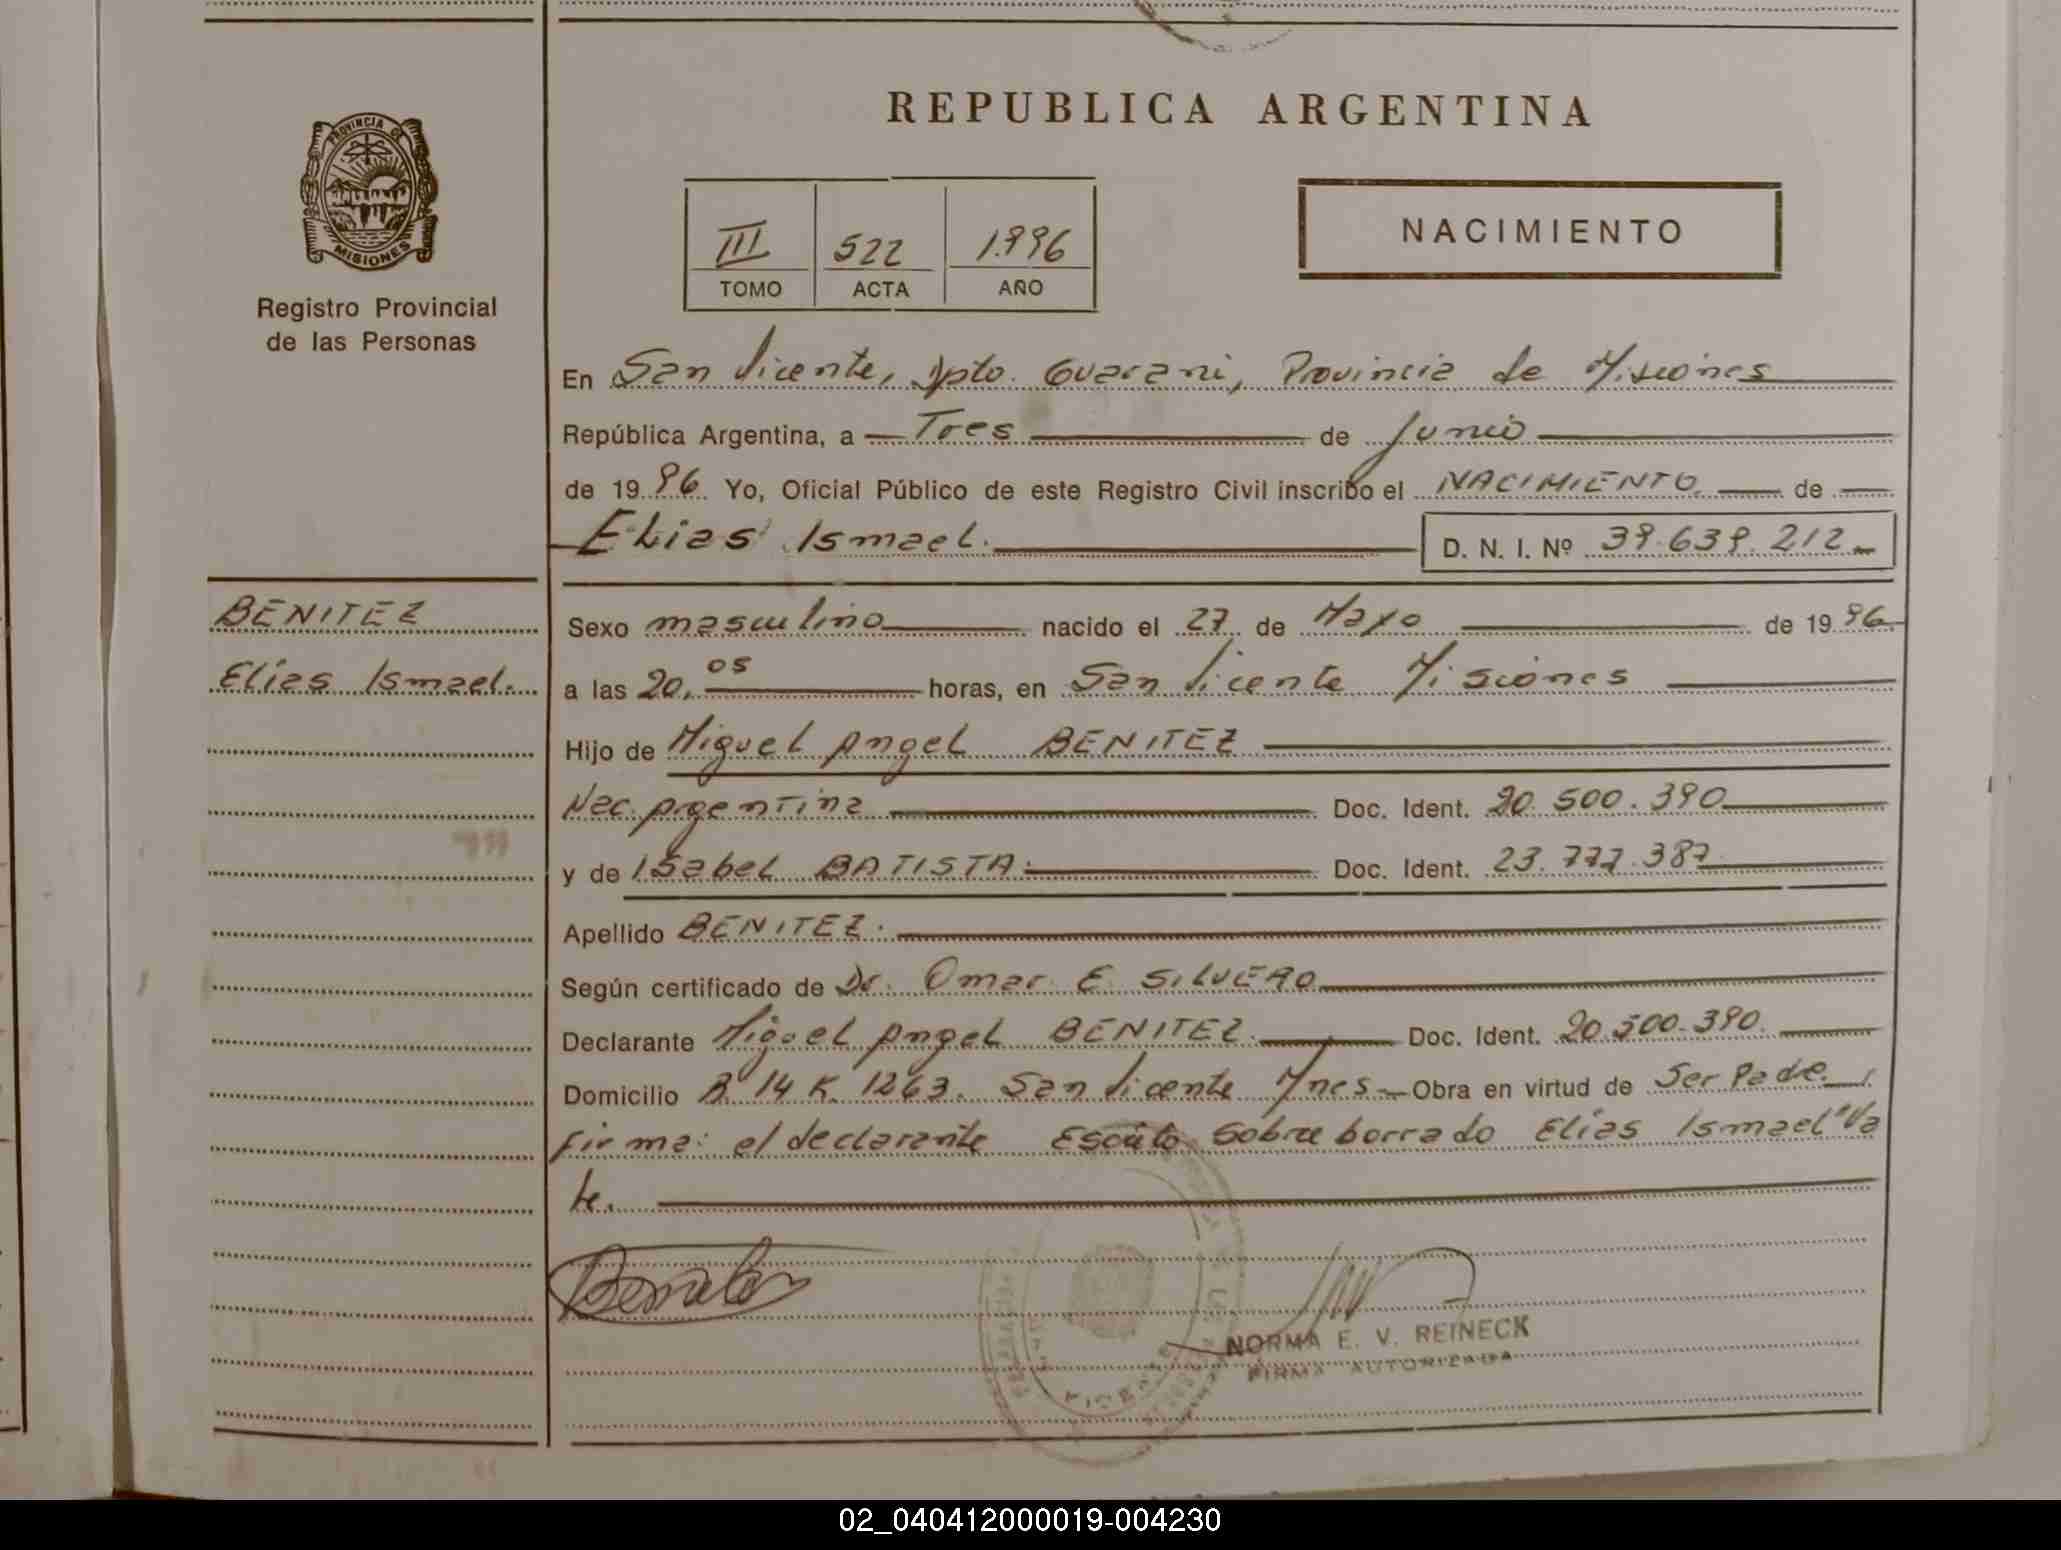 REPUBLICA ARGENTINA
PROVINCIA DE
MISIONES
Registro Provincial
de las Personas
III 522 1.996
TOMO ACTA AÑO
NACIMIENTO
En San Vicente, Dpto. Guarani, Provincia de Misiones
República Argentina, a Tres de Junio
de 19 96. Yo, Oficial Público de este Registro Civil inscribo el NACIMIENTO de
Elias Ismael. D. N. I. Nº 39.639.212
BENITEZ
Elias Ismael.
Sexo masculino nacido el 27 de Mayo de 19 96
a las 20,05 horas, en San Vicente Misiones
Hijo de Miguel Angel BENITEZ
Nac. Argentina Doc. Ident. 20.500.390
y de Isabel BATISTA. Doc. Ident. 23.777.387
Apellido BENITEZ.
Según certificado de Dr. Omar E. SILVERO
Declarante Miguel Angel BENITEZ. Doc. Ident. 20.500.390.
Domicilio B. 14 K. 1263. San Vicente Mnes. Obra en virtud de Ser Padre.
Firma: el declarante Escrito Sobre borrado Elias Ismael" Va
le.
NORMA E. V. REINECK
FIRMA AUTORIZADA
02_040412000019-004230